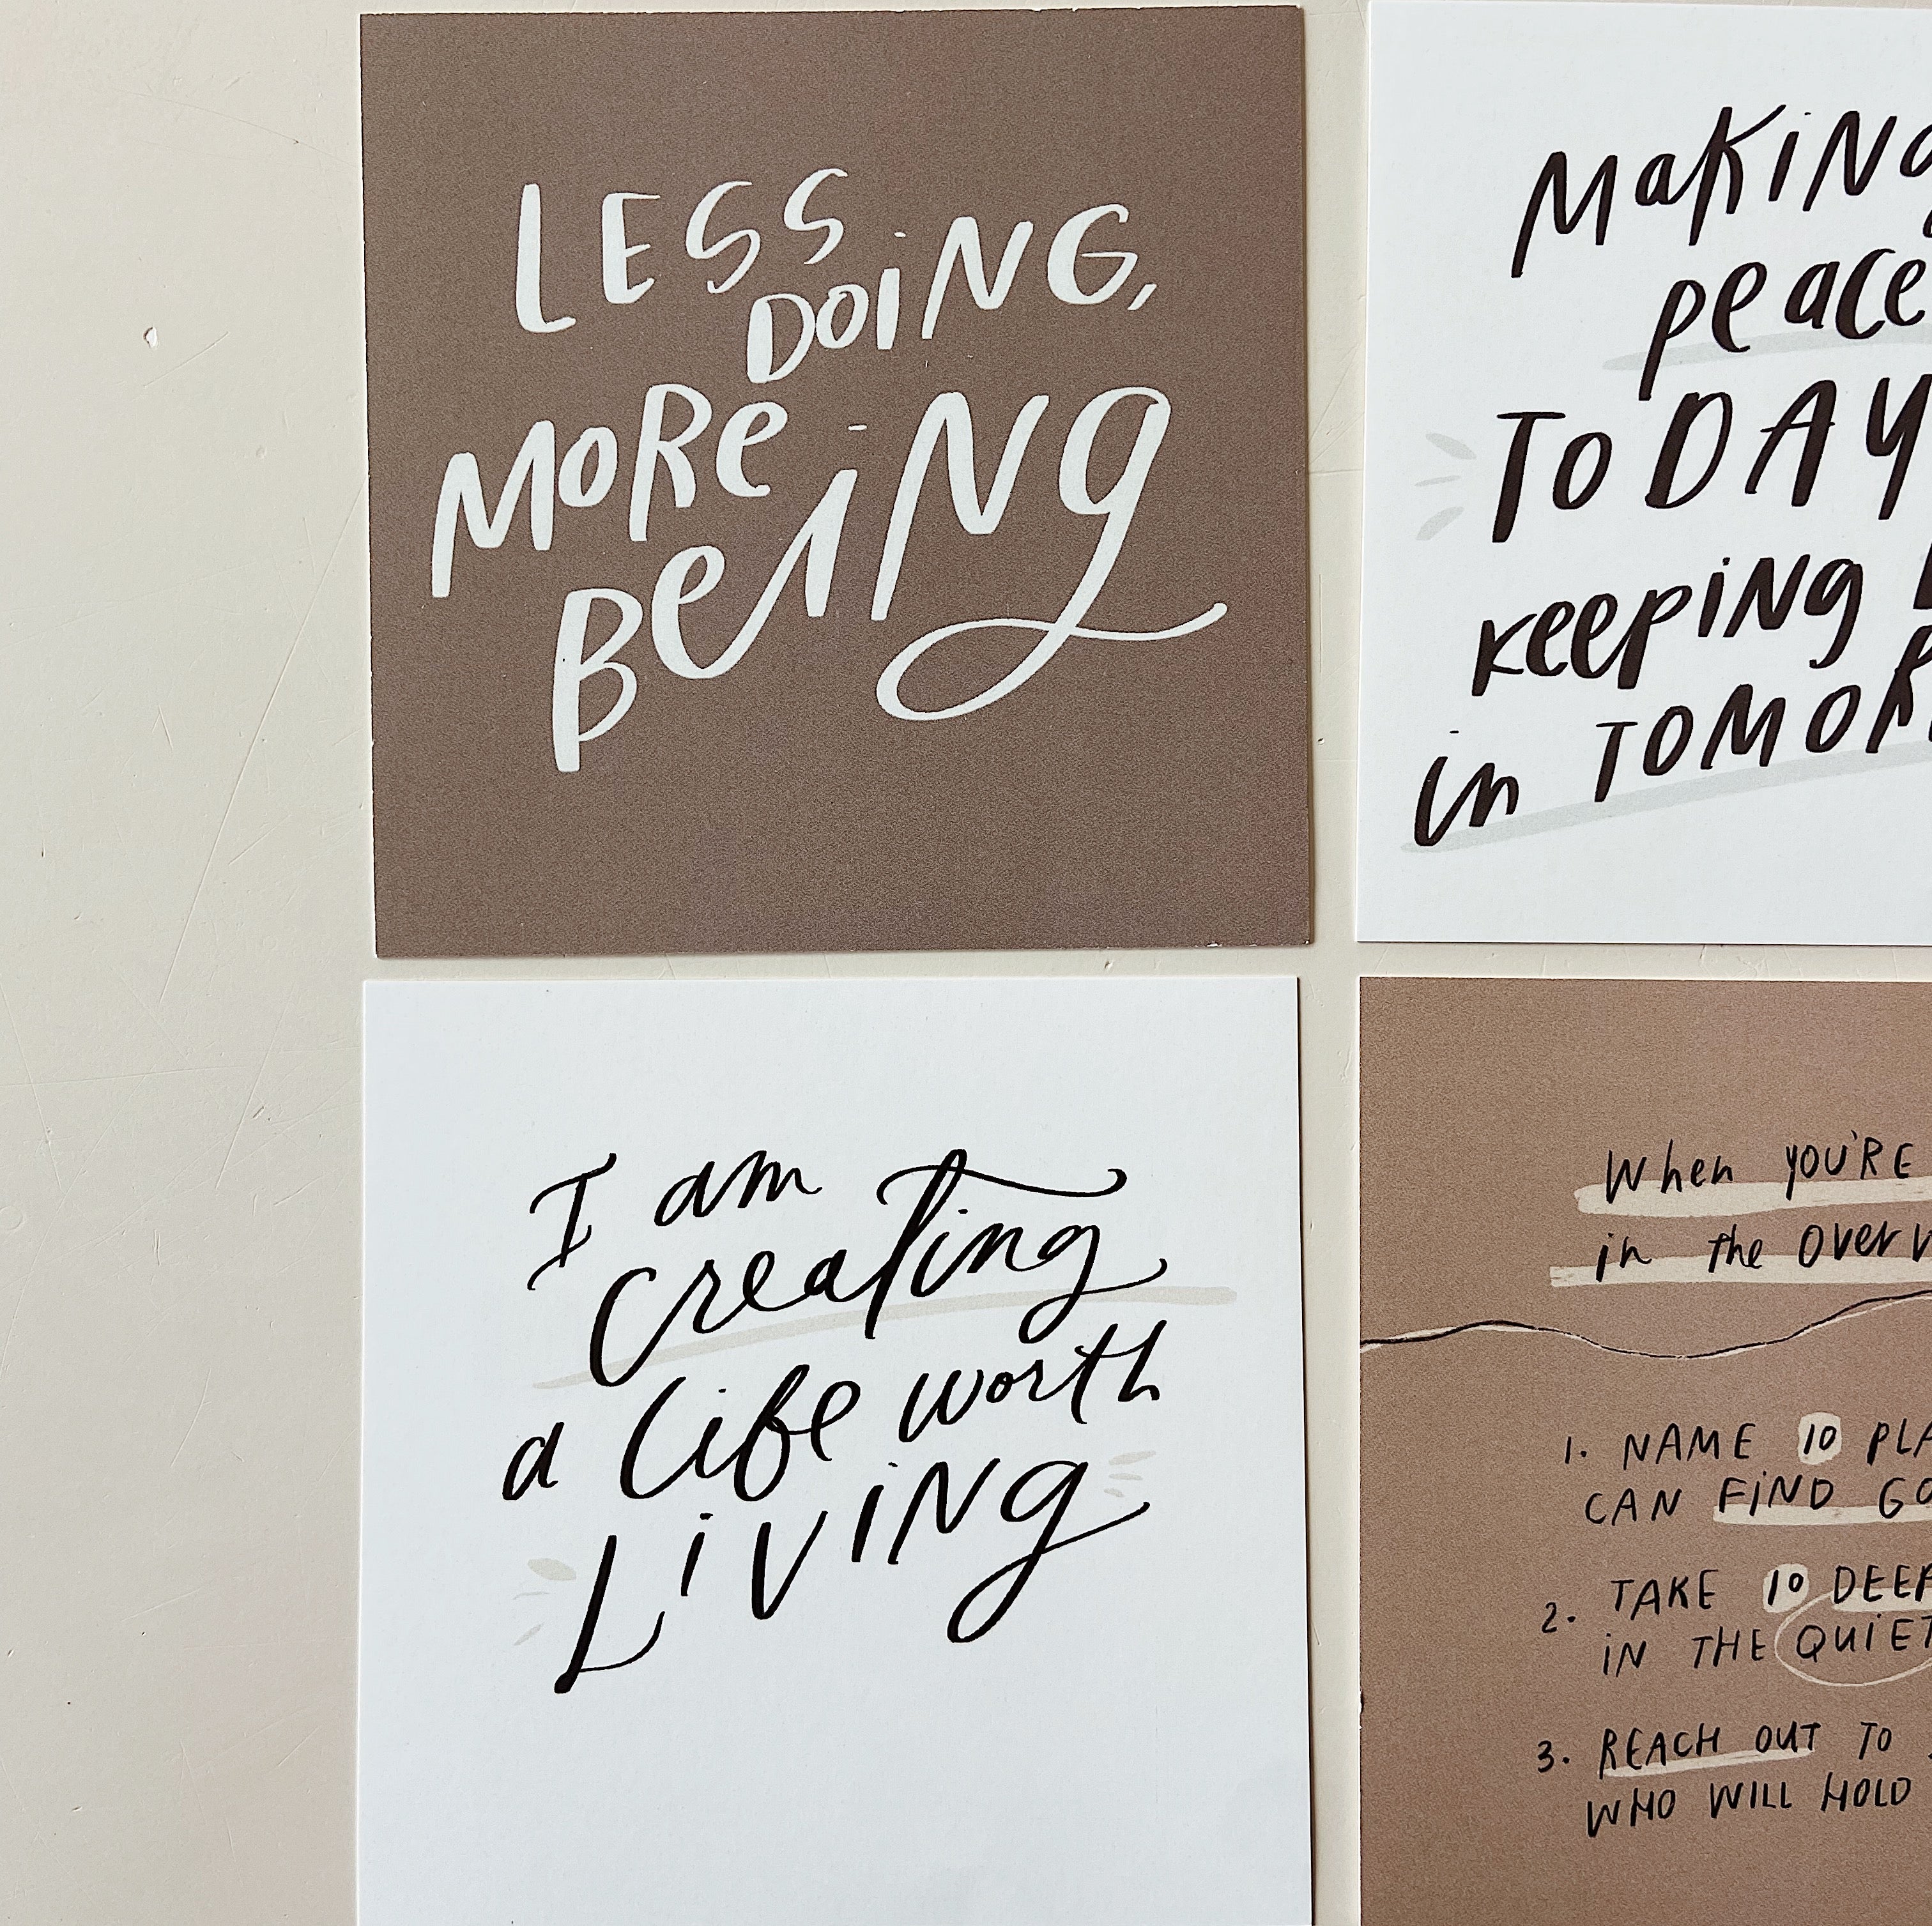 LESS
DOING,
MORE
BeiNg
MaKiNg
peace
ToDAY
keeping
in TOMOR
I am
creating
a life worth
LiViNg
When YOU'RE
in the Over
1. NAME 10 PLA
CAN FiND GO
2. TAKE 10 DEEP
iN THE QUiET
3. REACH OUT TO
WHO WiLL HOLD